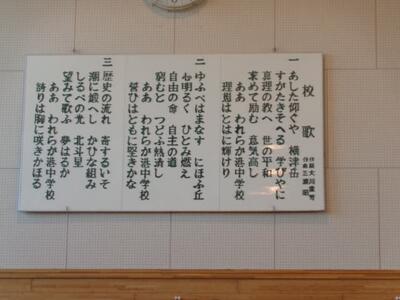 校歌
作詞 大川
作曲
一
あした仰ぐや 横津岳
すがたさそへる 学びやに
真理の教へ 世の平和
求めて励む 意気高し
ああ われらが港中学校
理想はとはに輝けり
二
ゆふべはまなす にほふ丘
心明るく ひとみ燃え
自由の命 自主の道
窮むと つどふ熱済し
ああ われらが港中学校
誓ひはともに堅きかな
三
歴史の流れ 寄するいそ
潮に鍛へし かひな組み
しるべの光 北斗星
望みて歌ふ 夢はるか
ああ われらが港中学校
誇りは胸に咲きかほる